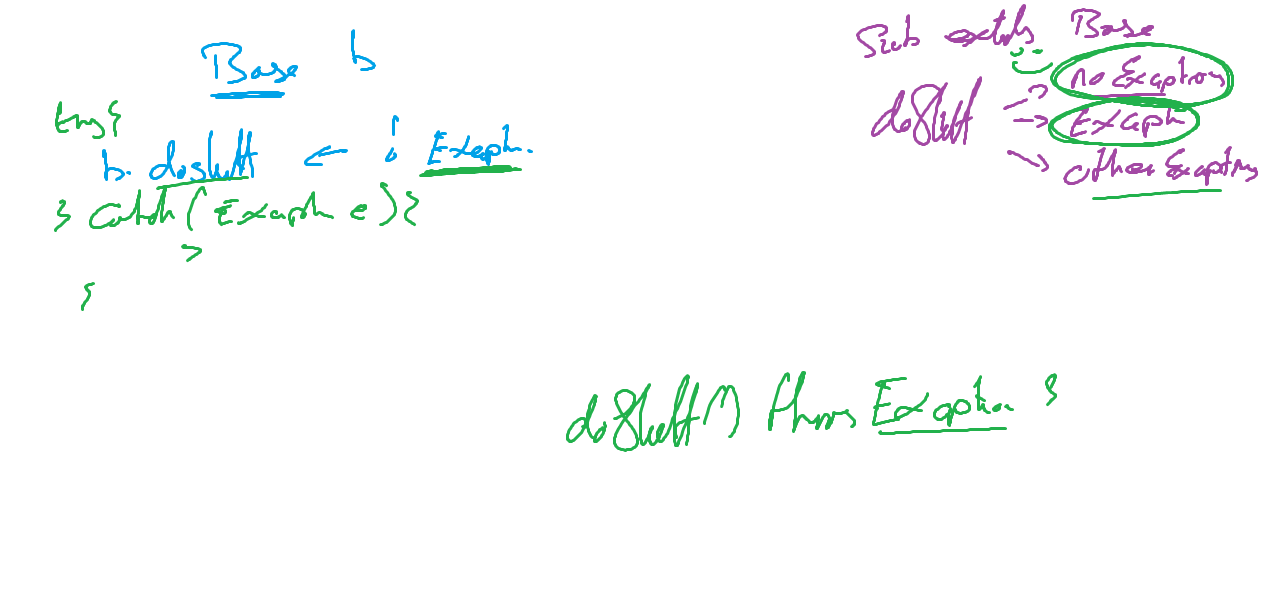 Base b
try{
b. doStuff ← : Except.
} catch( Except e ){
}
}
Sub extends Base
doStuff → no Exception
→ Except
→ other Exception
doStuff() throws Exception {